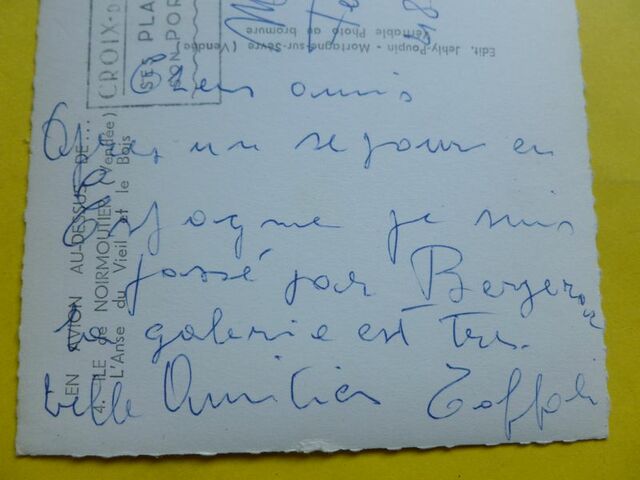 Chers amis
Après un sejour en
Espagne je suis
passé par Bergerac
la galerie est Tres
belle Amitiés Toffoli
EN AVION AU-DESSUS DE....
4. ILE de NOIRMOUTIER (Vendée)
L'Anse du Vieil et le Bois
CROIX-D
SES PLA
SON POR
Edit. Jehly-Poupin - Mortagne-sur-Sèvre (Vendée
Véritable Photo au bromure
48